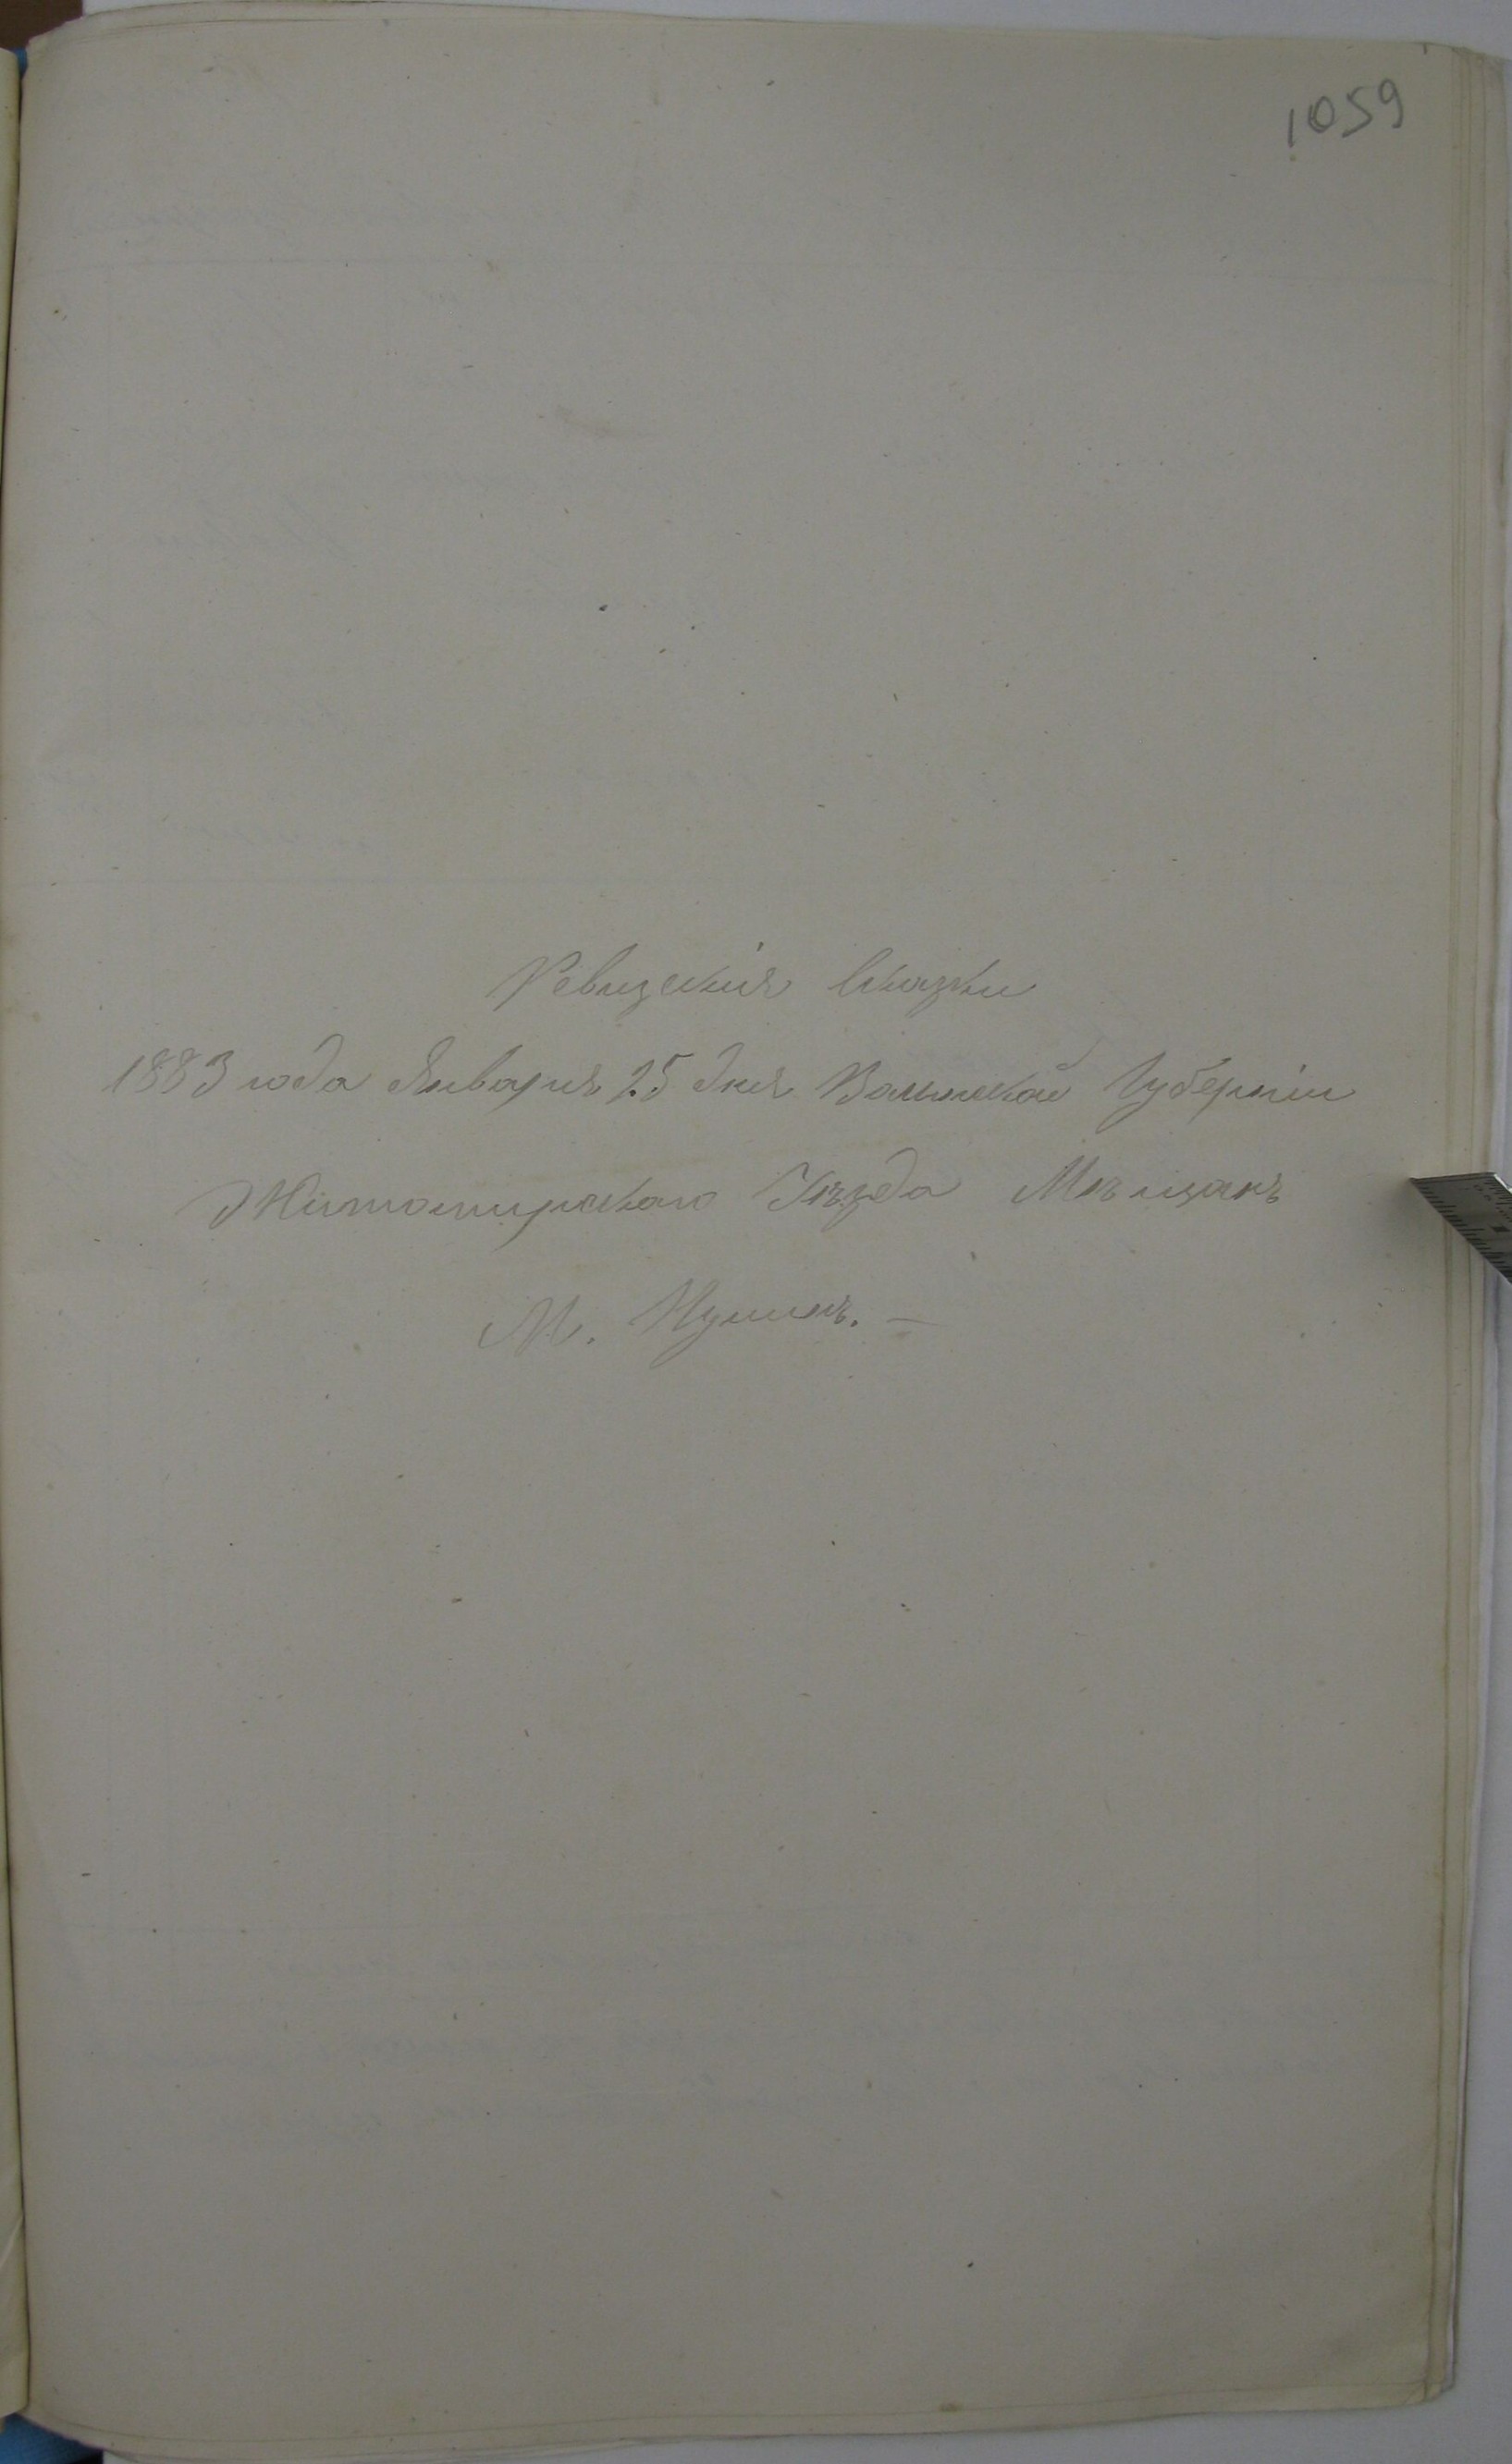 1059
Ревизскія сказки
1883 года Января 25 дня Волынской Губерніи
Житомирскаго Уѣзда Мѣщанъ
М.